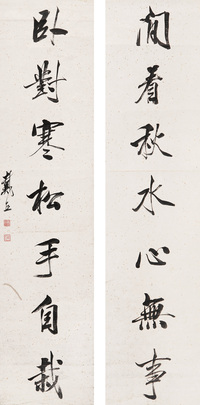 閒看秋水心無事
卧對寒松手自栽
戴立